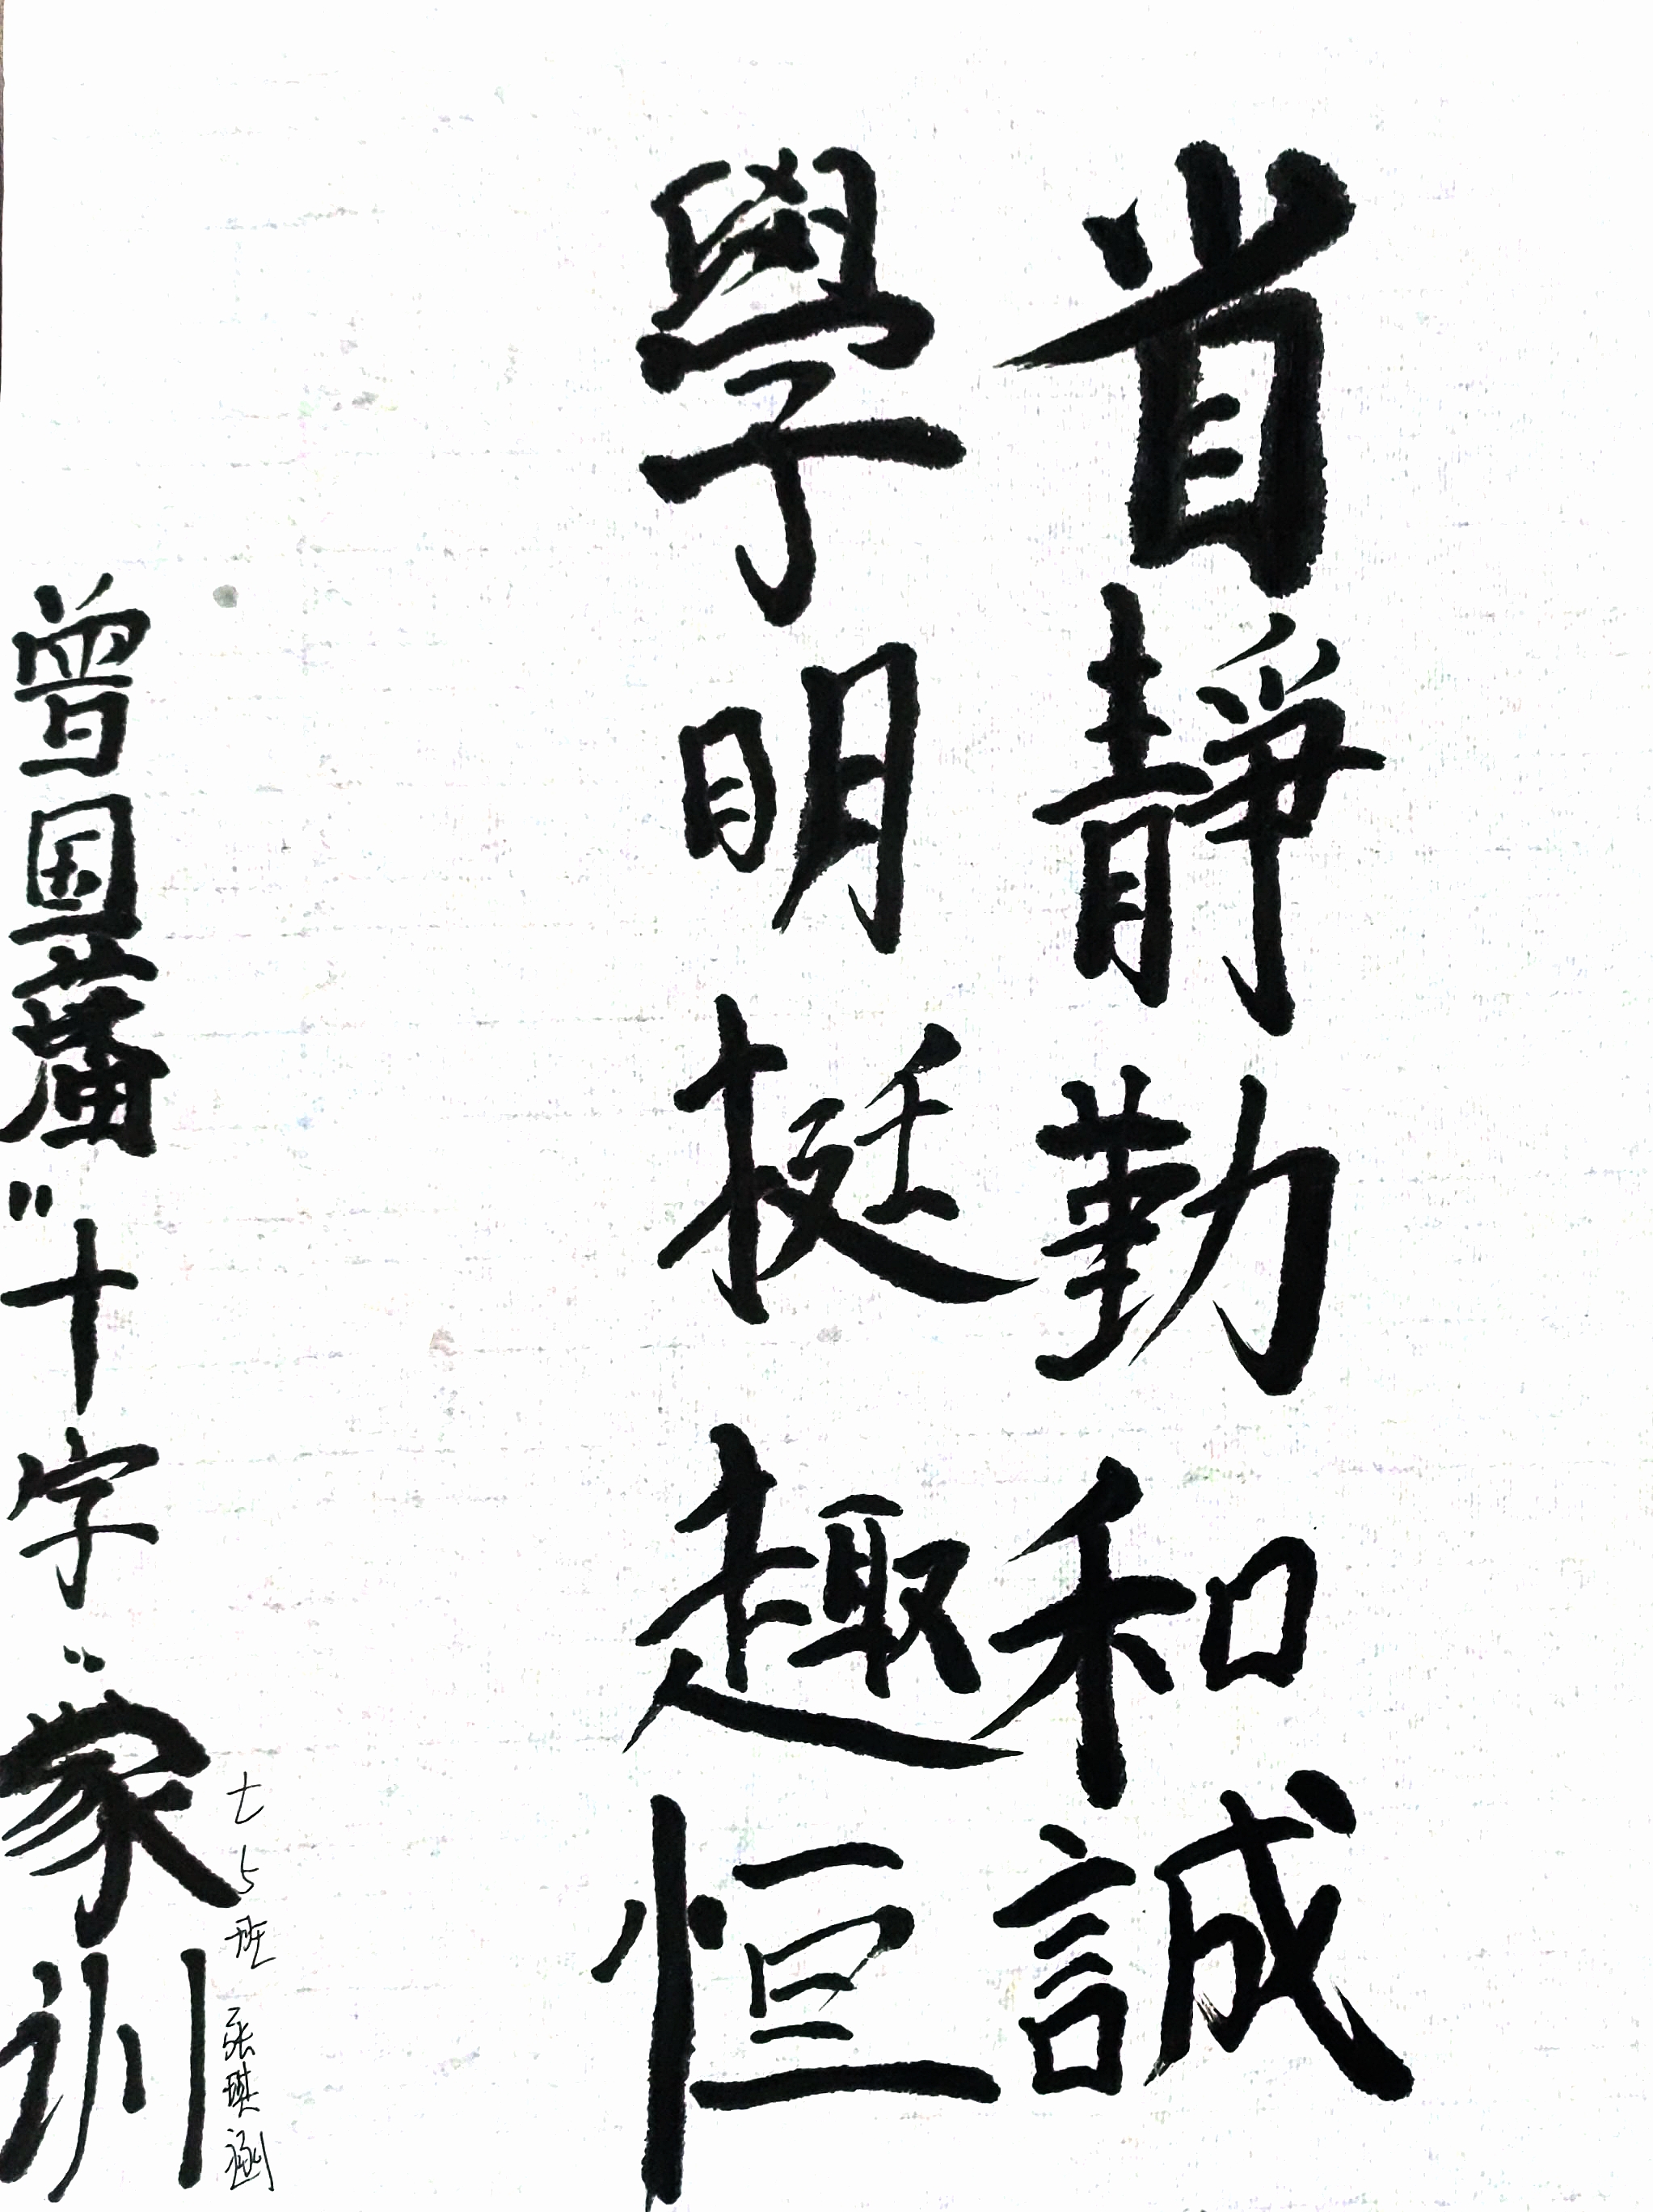 省靜勤和誠
學明挺趣恒
七5班 张琪涵
曾国藩"十字"家训